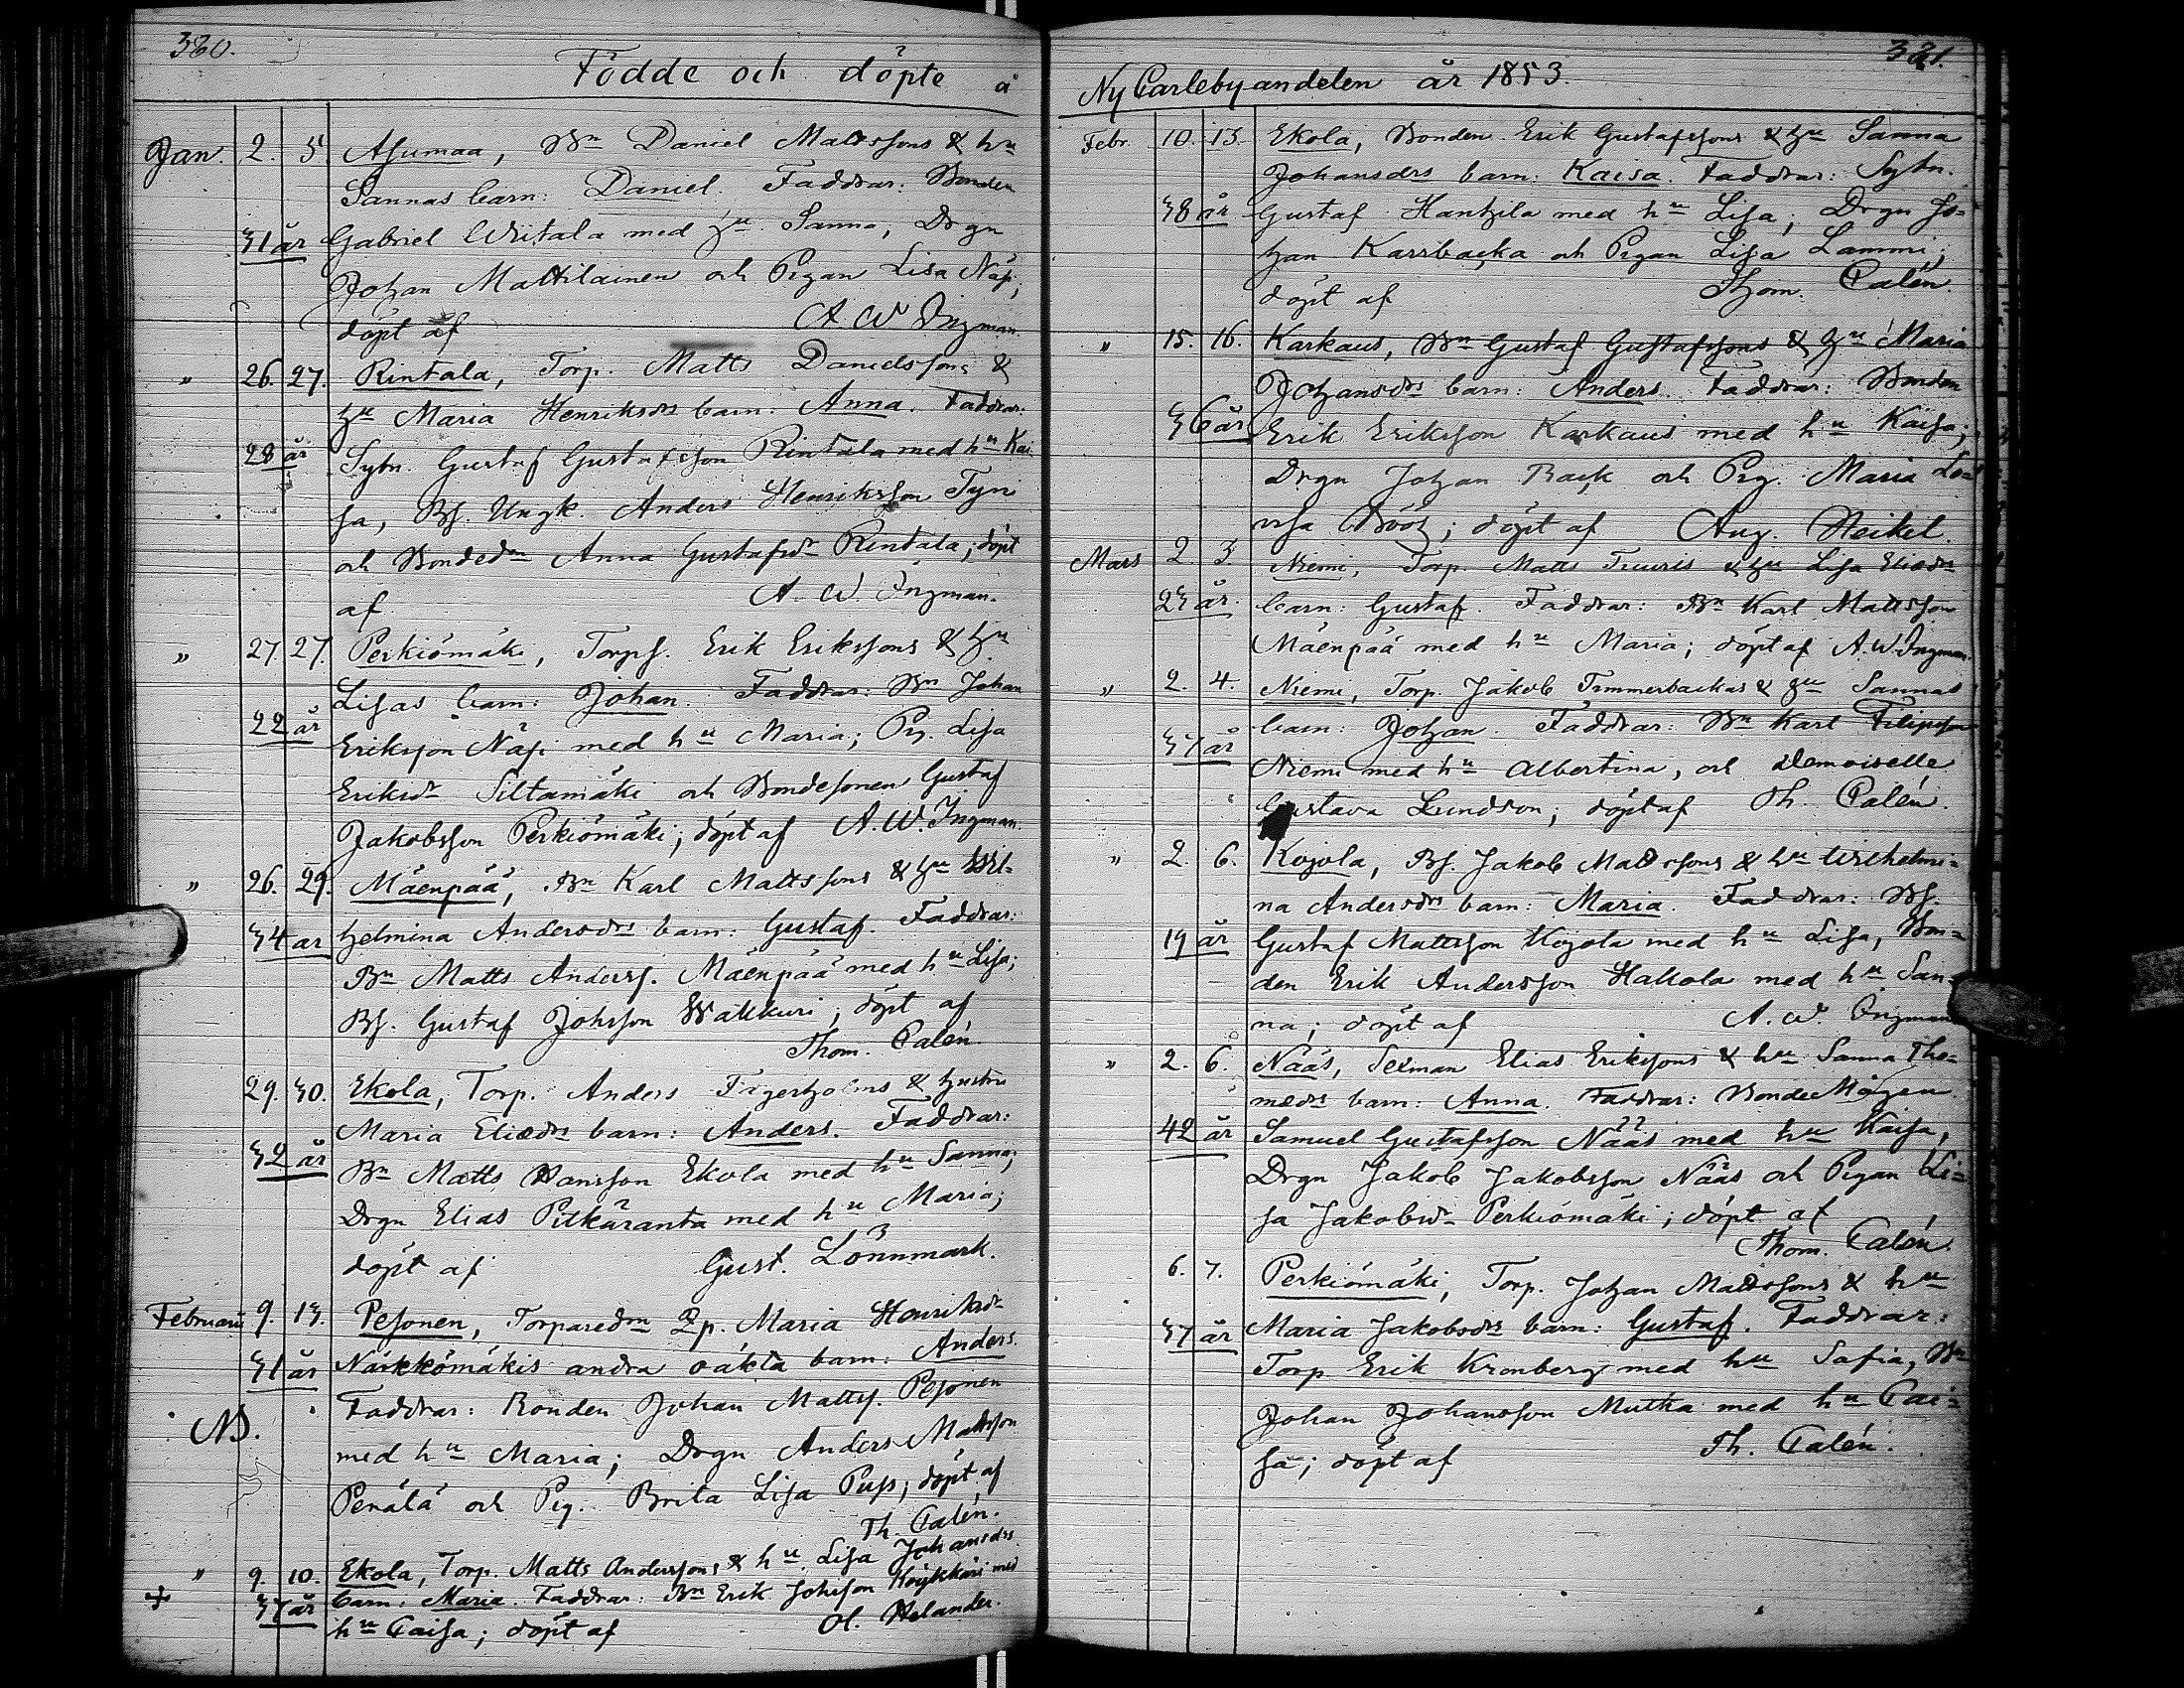 320.
Födde och döpte å
Jan. 2. 5. Asumaa, Bn Daniel Mattssons & hu
Sannas barn: Daniel. Faddrar: Bonden
31 år Gabriel Writala med hu Sanna, Drgn
Johan Mattilainen och Pigan Lisa Näs;
döpt af A W Ingman.
" 26. 27. Rintala, Torp. Matts Danielssons &
hu Maria Henriksdrs barn: Anna. Faddrar:
28 år Sytn. Gustaf Gustafsson Rintala med hu Kai
sa, Bs. Ungk. Anders Henriksson Tyni
och Bondedn Anna Gustafsdr Rintala; döpt
af A. W. Ingman.
" 27. 27. Perkiömäki, Torps. Erik Erikssons & hu
Lisas barn: Johan. Faddrar: Bn Johan
22 år Eriksson Näsi med hu Maria; Pig. Lisa
Eriksdr Siltamäki och Bondesonen Gustaf
Jakobsson Perkiömäki; döpt af A. W. Ingman.
" 26. 29. Mäenpää, Bn Karl Mattssons & hu Wil-
34 år helmina Andersdrs barn: Gustaf. Faddrar:
Bn Matts Anderss. Mäenpää med hu Lisa;
Bs. Gustaf Johsson Wälkkuri; döpt af
Thom. Calén.
29. 30. Ekola, Torp. Anders Fagerholms & hustru
Maria Eliædrs barn: Anders. Faddrar:
32 år Bn Matts Hansson Ekola med hu Sanna;
Drgn Elias Pitkäranta med hu Maria;
döpt af Gust. Lönnmark.
Februari 9. 13. Pesonen, Torparedn Qp. Maria Henriksdr
31 år Närkkömäkis andra oäkta barn: Anders.
Faddrar: Bonden Johan Mattss. Pesonen
NB. med hu Maria; Drgn Anders Mattsson
Penälä och Pig. Brita Lisa Puss; döpt af
Th. Calén.
" 9. 10. Ekola, Torp. Matts Anderssons & hu Lisa Johansdrs
37 år barn: Maria. Faddrar: Bn Erik Johsson Koukkari med
hu Caisa; döpt af H. Helander.
321.
Ny Carleby andelen år 1853.
Febr. 10. 13. Ekola, Bonden Erik Gustafssons & hu Sanna
Johansdrs barn: Kaisa. Faddrar: Sytn.
38 år Gustaf Hantzila med hu Lisa; Drgn Jo-
han Karsbacka och Pigan Lisa Lammi;
döpt af Thom. Calén.
" 15. 16. Karkaus, Bn Gustaf Gustafssons & hu Maria
Johansdrs barn: Anders. Faddrar: Bonden
36 år Erik Eriksson Karkaus med hu Kaisa;
Drgn Johan Back och Pig. Maria Lo-
visa Böös; döpt af Aug. Heikel.
Mars 2. 3. Niemi, Torp. Matts Tuuris & hu Lisa Eliædrs
23 år. barn: Gustaf. Faddrar: Bn Karl Mattsson
Mäenpää med hu Maria; döpt af A. W. Ingman.
" 2. 4. Niemi, Torp. Jakob Timmerbackas & hu Sannas
37 år barn: Johan. Faddrar: Bn Karl Filipsson
Niemi med hu Albertina, och Demoiselle
Gustava Lundson; döpt af Th. Calén.
" 2. 6. Kojola, Bs. Jakob Mattssons & hu Wilhelmi-
na Andersdrs barn: Maria. Faddrar: Bs.
19 år Gustaf Mattsson Kojola med hu Lisa, Bon-
den Erik Andersson Hakola med hu San-
na; döpt af A. W. Ingman
" 2. 6. Nääs, Sexman Elias Erikssons & hu Sanna Tho-
medrs barn: Anna. Faddrar: Bonde Mågen
42 år Samuel Gustafsson Nääs med hu Kaisa,
Drgn Jakob Jakobsson Nääs och Pigan Li-
sa Jakobsdr Perkiömäki; döpt af
Thom. Calén.
6. 7. Perkiömäki, Torp. Johan Mattssons & hu
37 år Maria Jakobsdrs barn: Gustaf. Faddrar:
Torp. Erik Kronberg med hu Safia, Bn
Johan Johansson Mutka med hu Cai-
sa; döpt af Th. Calén.